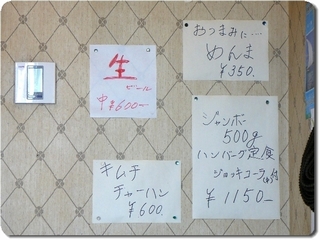 おつまみに…
めんま
¥350.
生
ビール
中¥600ー
ジャンボー
500g
ハンバーグ定食
ジョッキコーラ付
¥1150ー
キムチ
チャーハン
¥600.